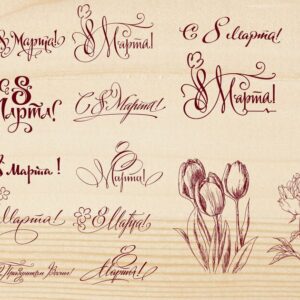 8 Марта!
8 Марта!
С 8 Марта!
С 8
Марта!
С 8 Марта!
8 Марта!
8 Марта!
8
Марта!
Марта!
8 Марта!
8 Марта!